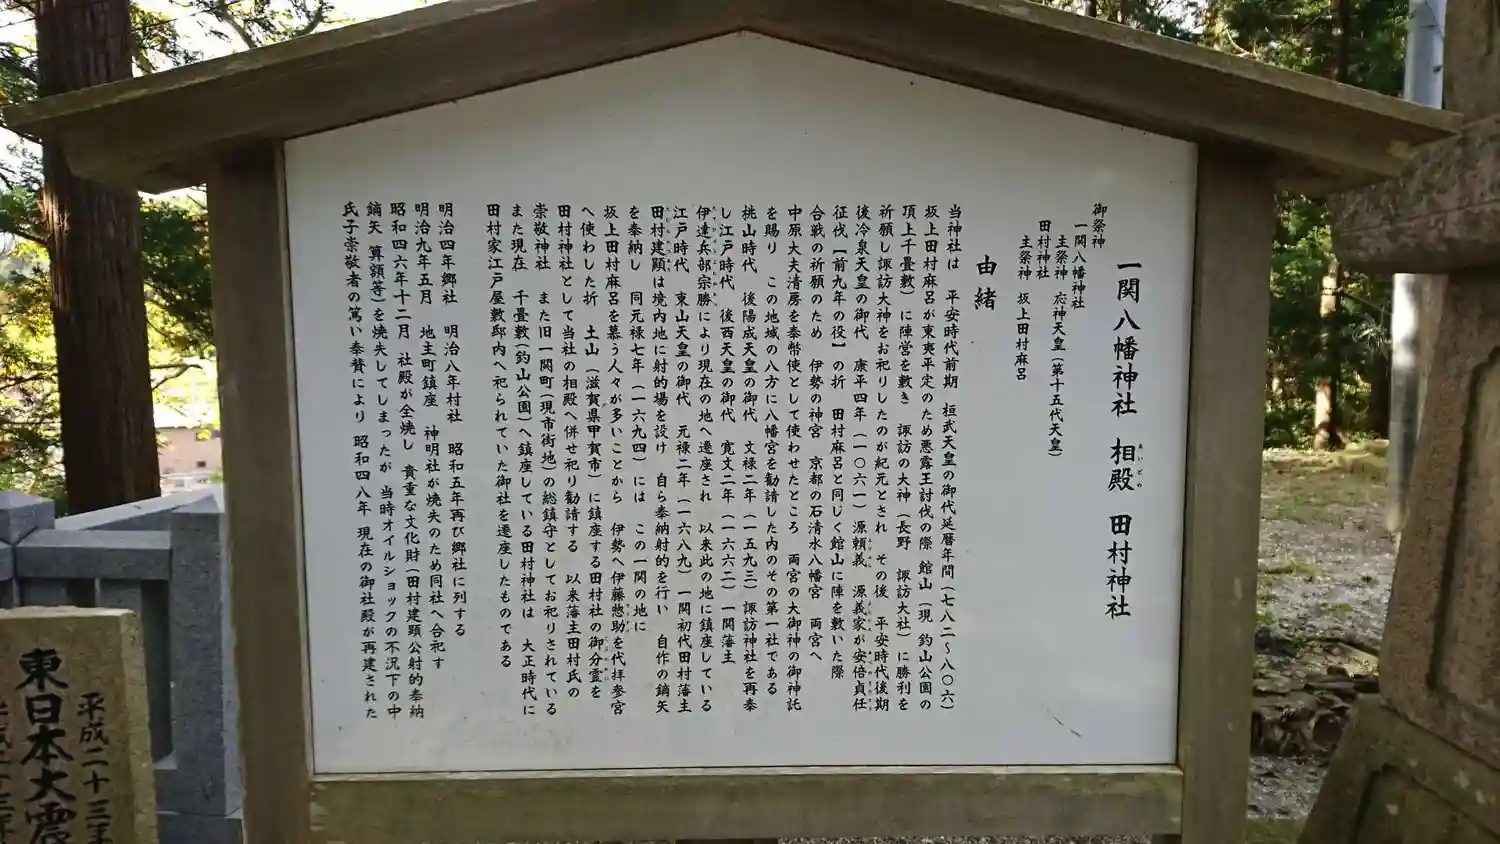 一関八幡神社 相殿 田村神社
あいどの
御祭神
一関八幡神社
主祭神 応神天皇(第十五代天皇)
田村神社
主祭神 坂上田村麻呂
由緒
当神社は 平安時代前期 桓武天皇の御代延暦年間(七八二〜八〇六)
坂上田村麻呂が東夷平定のため悪露王討伐の際 館山(現 釣山公園の
頂上千畳敷)に陣営を敷き 諏訪の大神(長野 諏訪大社)に勝利を
祈願し諏訪大神をお祀りしたのが紀元とされ その後 平安時代後期
後冷泉天皇の御代 康平四年(一〇六一)源頼義 源義家が安倍貞任
征伐【前九年の役】の折 田村麻呂と同じく館山に陣を敷いた際
合戦の祈願のため 伊勢の神宮 京都の石清水八幡宮 両宮へ
中原大夫清房を奉幣使として使わせたところ 両宮の大御神の御神託
を賜り この地域の八方に八幡宮を勧請した内のその第一社である
桃山時代 後陽成天皇の御代 文禄二年(一五九三)諏訪神社を再奉
し江戸時代 後西天皇の御代 寛文二年(一六六二)一関藩主
伊達兵部宗勝により現在の地へ遷座され 以来此の地に鎮座している
江戸時代 東山天皇の御代 元禄二年(一六八九)一関初代田村藩主
田村建顕は境内地に射的場を設け 自ら奉納射的を行い 自作の鏑矢
を奉納し 同元禄七年(一六九四)には この一関の地に
坂上田村麻呂を慕う人々が多いことから 伊勢へ伊藤愸助を代拝参宮
へ使わした折 土山(滋賀県甲賀市)に鎮座する田村社の御分霊を
田村神社として当社の相殿へ併せ祀り勧請する 以来藩主田村氏の
崇敬神社 また旧一関町(現市街地)の総鎮守としてお祀りされている
また現在 千畳敷(釣山公園)へ鎮座している田村神社は 大正時代に
田村家江戸屋敷邸内へ祀られていた御社を遷座したものである
明治四年郷社 明治八年村社 昭和五年再び郷社に列する
明治九年五月 地主町鎮座 神明社が焼失のため同社へ合祀す
昭和四六年十二月 社殿が全焼し 貴重な文化財(田村建顕公射的奉納
鏑矢 算額等)を焼失してしまったが 当時オイルショックの不況下の中
氏子崇敬者の篤い奉賛により 昭和四八年 現在の御社殿が再建された
平成二十三年
東日本大震